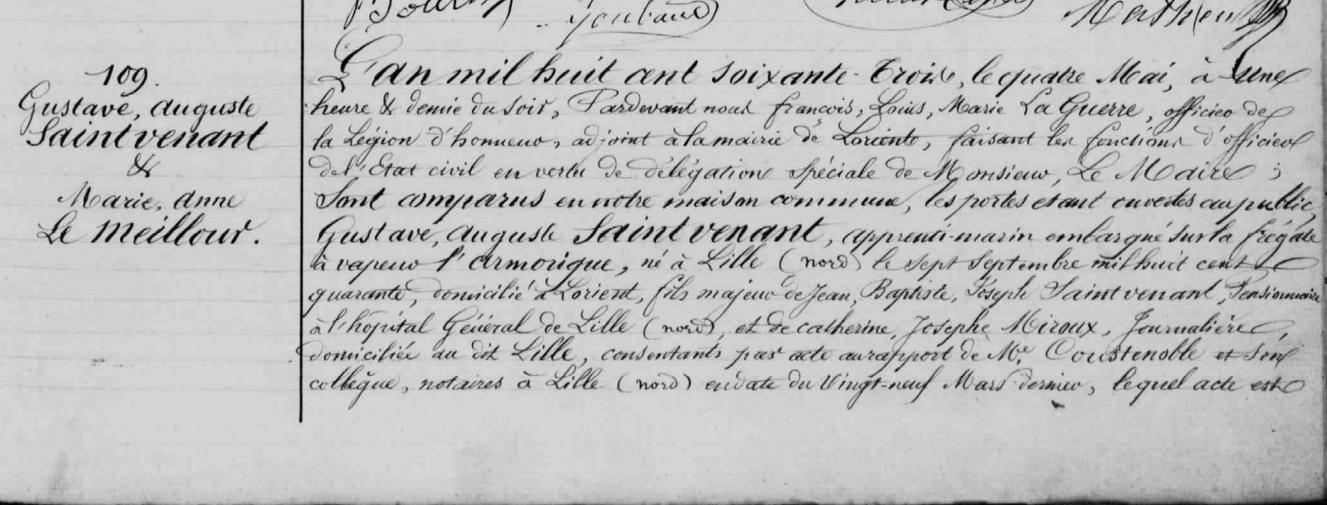 109.
Gustave, auguste
Saintvenant
&
Marie, anne
Le Meillour.
L'an mil huit cent soixante-trois, le quatre Mai, à une
heure & demie du soir, Pardevant nous françois, Louis, Marie La Guerre, officier de
la Légion d'honneur, adjoint à la mairie de Lorient, faisant les fonctions d'officier
de l'Etat civil en vertu de délégation spéciale de Monsieur, Le Maire ;
Sont comparus en notre maison commune, les portes etant ouvertes au public,
Gustave, auguste Saintvenant, apprenti-marin embarqué sur la frégate
à vapeur l'armorique, né à Lille (nord) le sept septembre mil huit cent
quarante, domicilié à Lorient, fils majeur de Jean, Baptiste, Joseph Saintvenant, Pensionnaire
à l'hôpital Général de Lille (nord), et de catherine, Josephe Miroux, Journalière,
domiciliée au dit Lille, consentants par acte au rapport de Me. Coustenoble et son
collègue, notaires à Lille (nord) en date du vingt-neuf Mars dernier, lequel acte est